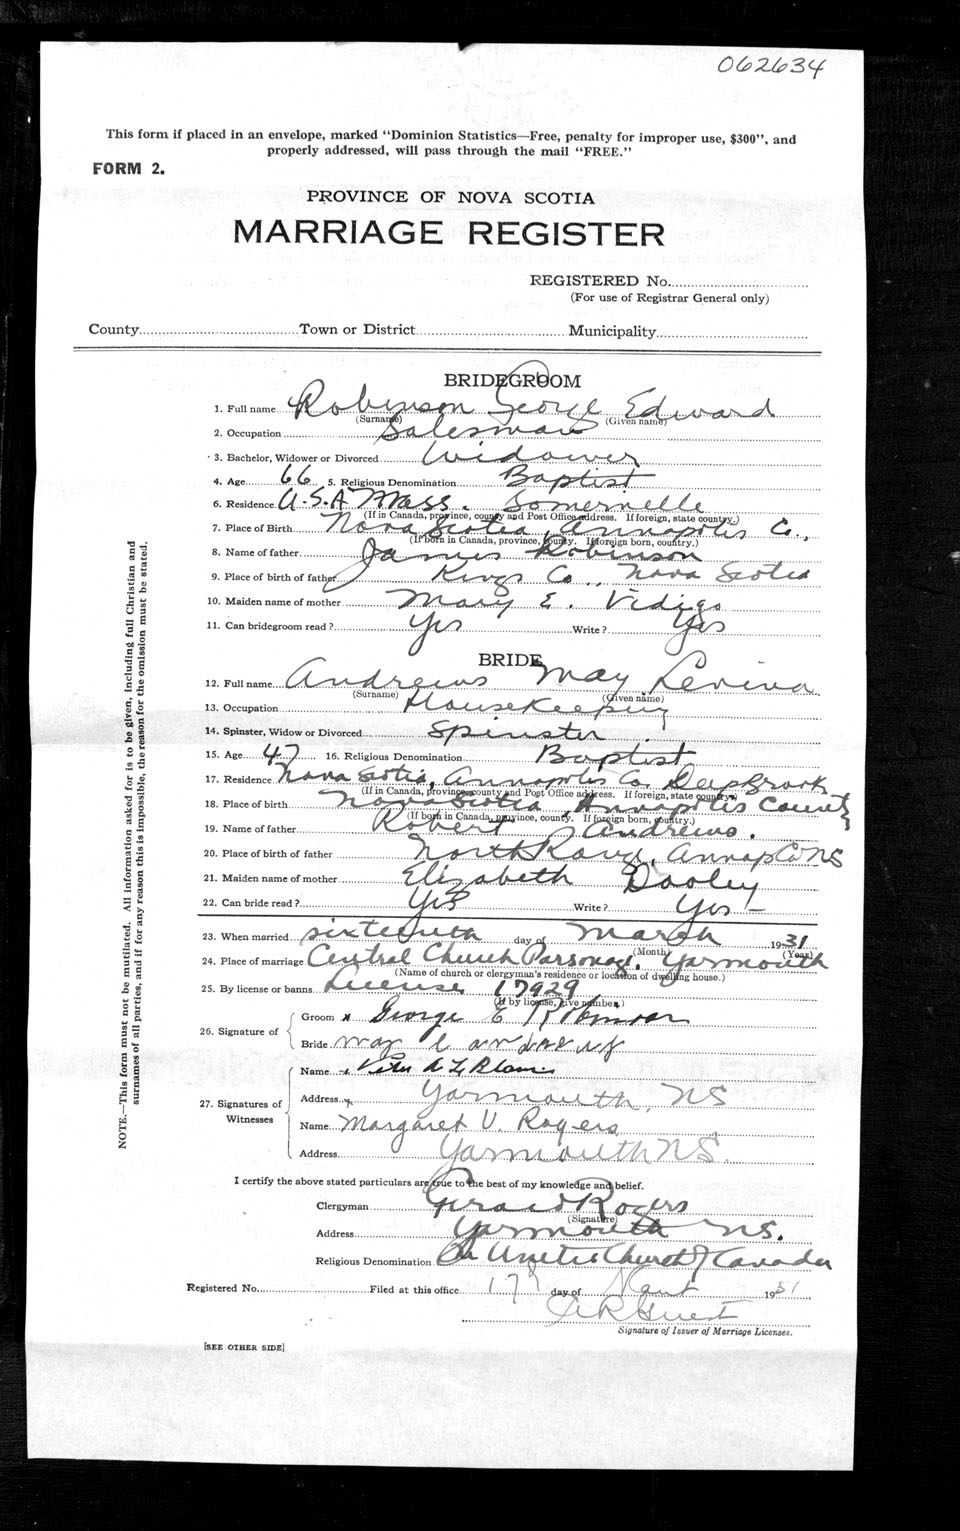 062634
This form if placed in an envelope, marked "Dominion Statistics—Free, penalty for improper use, $300", and
properly addressed, will pass through the mail "FREE."
FORM 2.
PROVINCE OF NOVA SCOTIA
MARRIAGE REGISTER
REGISTERED No.
(For use of Registrar General only)
County Town or District Municipality
BRIDEGROOM
1. Full name Robinson George Edward
(Surname) (Given name)
2. Occupation Salesman
3. Bachelor, Widower or Divorced Widower
4. Age 66 5. Religious Denomination Baptist
6. Residence U.S.A Mass. Somerville
(If in Canada, province, county and Post Office address. If foreign, state country.)
7. Place of Birth Nova Scotia, Annapolis Co.,
(If born in Canada, province, county. If foreign born, country.)
8. Name of father James Robinson
9. Place of birth of father Kings Co., Nova Scotia
10. Maiden name of mother Mary E.
11. Can bridegroom read? Yes Write? Yes
BRIDE
12. Full name Andrews May Levina
(Surname) (Given name)
13. Occupation Housekeeping
14. Spinster, Widow or Divorced Spinster
15. Age 47 16. Religious Denomination Baptist
17. Residence Nova Scotia, Annapolis Co. Deep Brook
(If in Canada, province, county and Post Office address. If foreign, state country.)
18. Place of birth Nova Scotia Annapolis County
(If born in Canada, province, county. If foreign born, country.)
19. Name of father Robert Andrews.
20. Place of birth of father North Range, Annap Co NS
21. Maiden name of mother Elizabeth Dooley
22. Can bride read? Yes Write? Yes
23. When married sixteenth day of March 1931
(Month) (Year)
24. Place of marriage Central Church Parsonage, Yarmouth
(Name of church or clergyman's residence or location of dwelling house.)
25. By license or banns License 17929
(If by license, give number.)
26. Signature of
Groom x George E Robinson
Bride May L Andrews
27. Signatures of Witnesses
Name
Address Yarmouth, NS
Name Margaret V. Rogers
Address Yarmouth NS.
I certify the above stated particulars are true to the best of my knowledge and belief.
Clergyman Gerald Rogers
(Signature)
Address Yarmouth NS.
Religious Denomination The United Church of Canada
Registered No. Filed at this office 17 day of 1931
Signature of Issuer of Marriage Licenses.
[SEE OTHER SIDE]
NOTE.—This form must not be mutilated. All information asked for is to be given, including full Christian and
surnames of all parties, and if for any reason this is impossible, the reason for the omission must be stated.